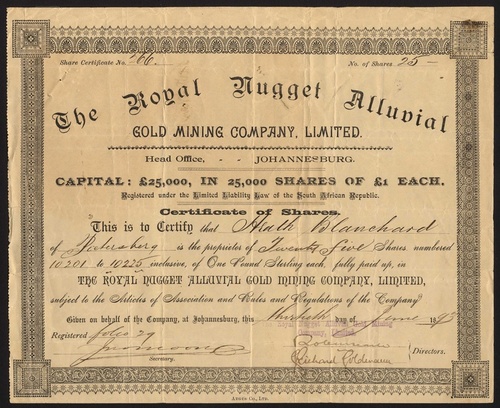 Share Certificate No. 266. No. of Shares 25
The Royal Nugget Alluvial
GOLD MINING COMPANY, LIMITED.
Head Office, - - JOHANNESBURG.
CAPITAL: £25,000, IN 25,000 SHARES OF £1 EACH.
Registered under the Limited Liability Law of the South African Republic.
Certificate of Shares.
This is to Certify that Blanchard
of is the proprietor of Twenty Five Shares numbered
10201 to 10225 inclusive, of One Pound Sterling each, fully paid up, in
THE ROYAL NUGGET ALLUVIAL GOLD MINING COMPANY, LIMITED,
subject to the Articles of Association and Rules and Regulations of the Company.
Given on behalf of the Company, at Johannesburg, this thirtieth day of June 1893
Royal Nugget Alluvial Gold Mining
Company, Limited
Registered
Secretary.
Richard Goldmann
Directors.
ARGUS CO., LTD.